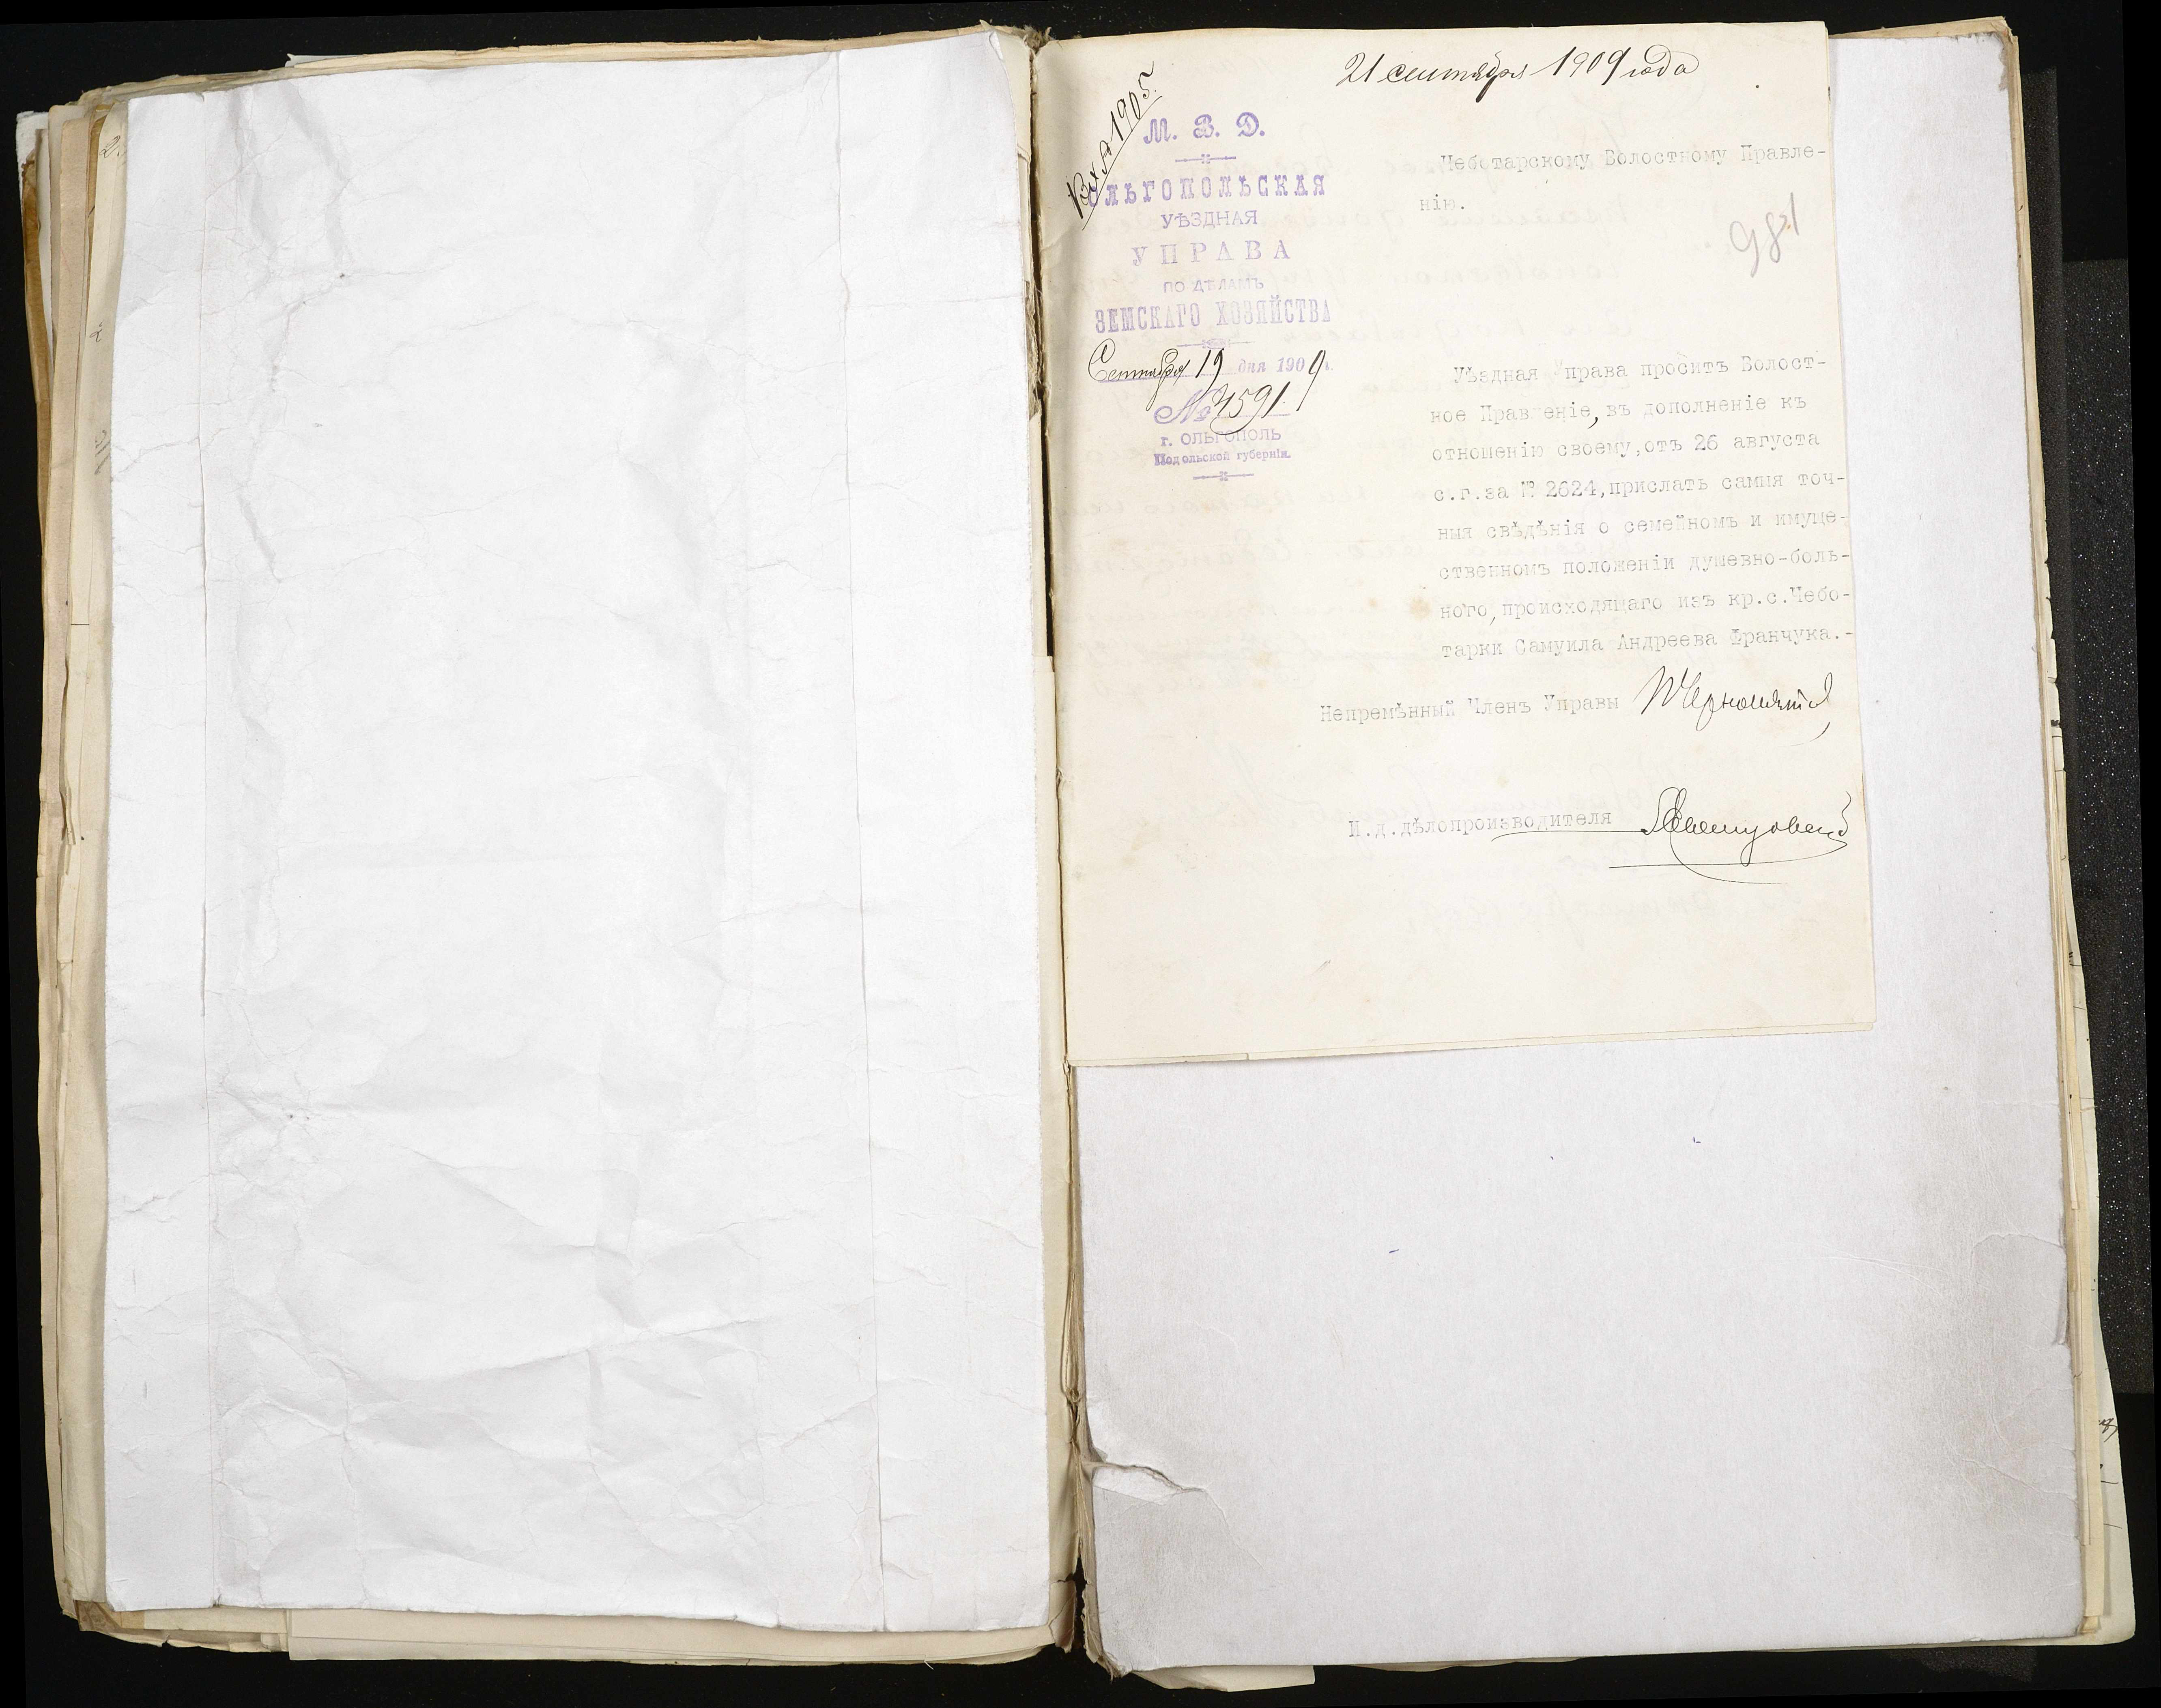 21 сентября 1909 года
Вх № 1905.
М. В. Д.
ОЛЬГОПОЛЬСКАЯ
УѢЗДНАЯ
УПРАВА
ПО ДѢЛАМЪ
ЗЕМСКАГО ХОЗЯЙСТВА
Сентября 19 дня 1909 г.
№ 4591.
г. ОЛЬГОПОЛЬ
Подольской губерніи.
Чеботарскому Волостному Правле-
нію.
981
Уѣздная Управа проситъ Волост-
ное Правленіе, въ дополненіе къ
отношенію своему, отъ 26 августа
с.г. за № 2624, прислать самыя точ-
ныя свѣдѣнія о семейномъ и имуще-
ственномъ положеніи душевно-боль-
ного, происходящаго изъ кр.с.Чебо-
тарки Самуила Андреева Франчука.-
Непремѣнный Членъ Управы
И.д.дѣлопроизводителя